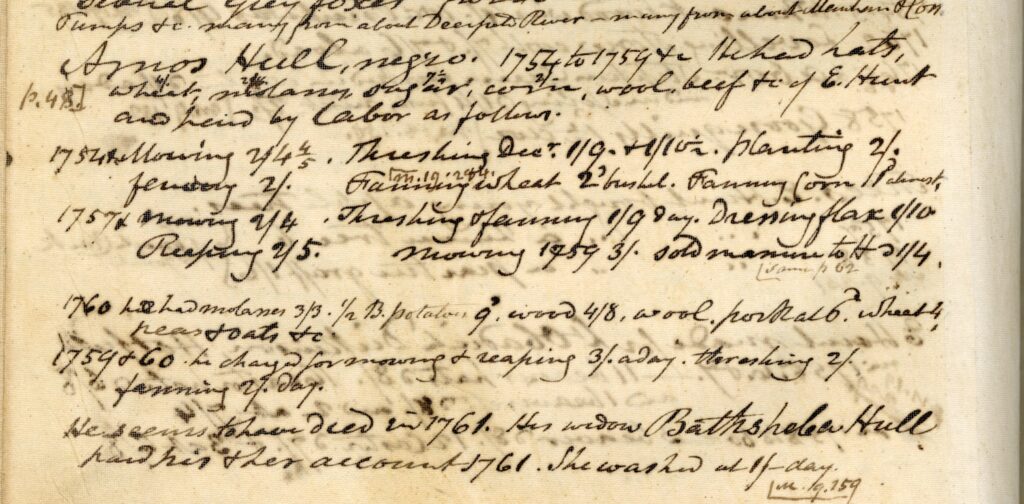 Pumps &c. many from about Deerfield River - many from about Manhan &
Amos Hull, negro. 1754 to 1759 &c He had hats,
p. 48] wheat, molasses, sugar, corn, wool, beef &c of E. Hunt
and paid by Labor as follows.
1754 & Mowing 2/4 . Threshing Decr. 1/9. & 1/10½. planting 2/.
fencing 2/. Fanning wheat 2d bushel. Fanning Corn 1d
1757 & mowing 2/4 . Threshing & fanning 1/9 day. Dressing flax 1/10
Reaping 2/5. mowing 1759 3/. sold manure to H 1/4.
p 62
1760 he had molasses 3/3. 1/2 B. potatoes 9d, wood 4/8, wool. pork at 6d. wheat 4/
peas & oats &c
1759 & 60. he charged for mowing & reaping 3/. a day. threshing 2/.
fanning 2/. day.
He seems to have died in 1761. His widow Bathsheba Hull
paid his & her account 1761. She washed at 1/- day.
M. 19. 259